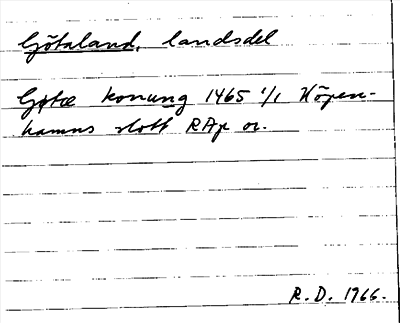 Götaland, landsdel
Gøtæ konung 1465 1/1 Köpen-
hamns slott RAp or.
R. D. 1966.